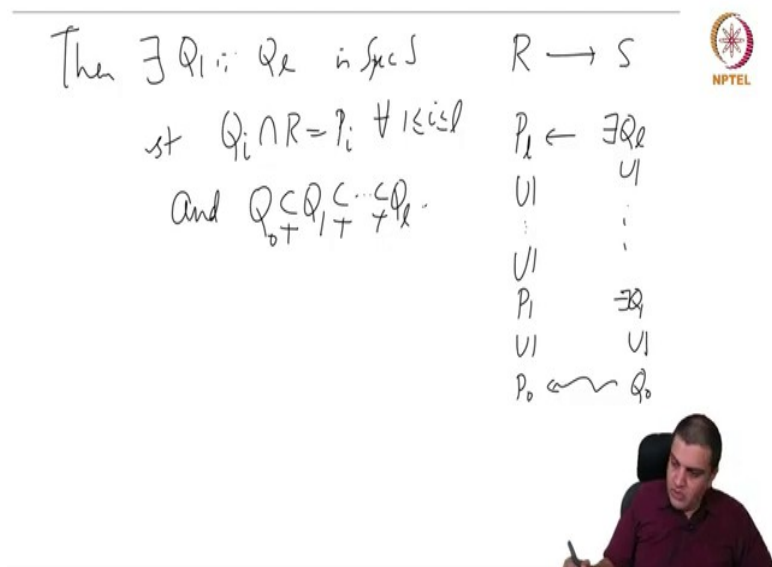 Then ∃ Q₁ ... Qₗ in Spec S
st Qᵢ ∩ R = Pᵢ ∀ 1≤i≤l
and Q₀ ⊊ Q₁ ⊊ ... ⊊ Qₗ.
R → S
Pₗ ← ∃Qₗ
U| U|
⋮ ⋮
U|
P₁ ∃Q₁
U| U|
P₀ ⟵ Q₀
NPTEL